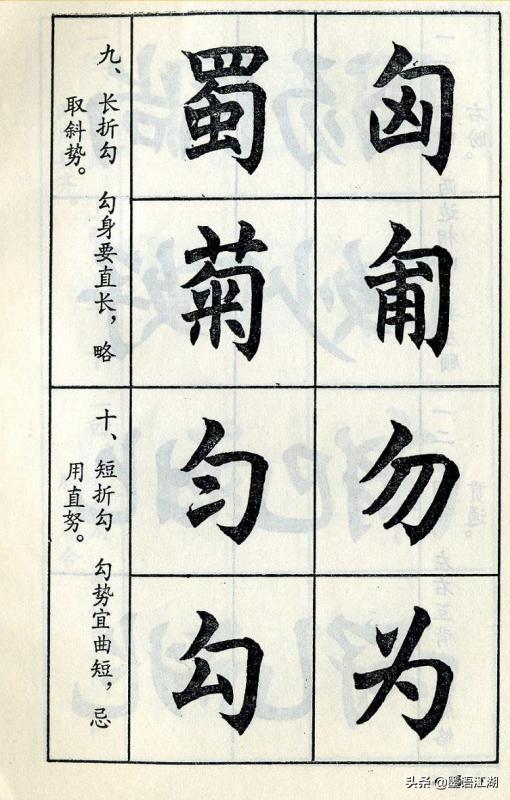 匈
匍
勿
为
蜀
菊
匀
勾
九、长折勾　勾身要直长，略
取斜势。
十、短折勾　勾势宜曲短，忌
用直努。
头条 @墨语江湖